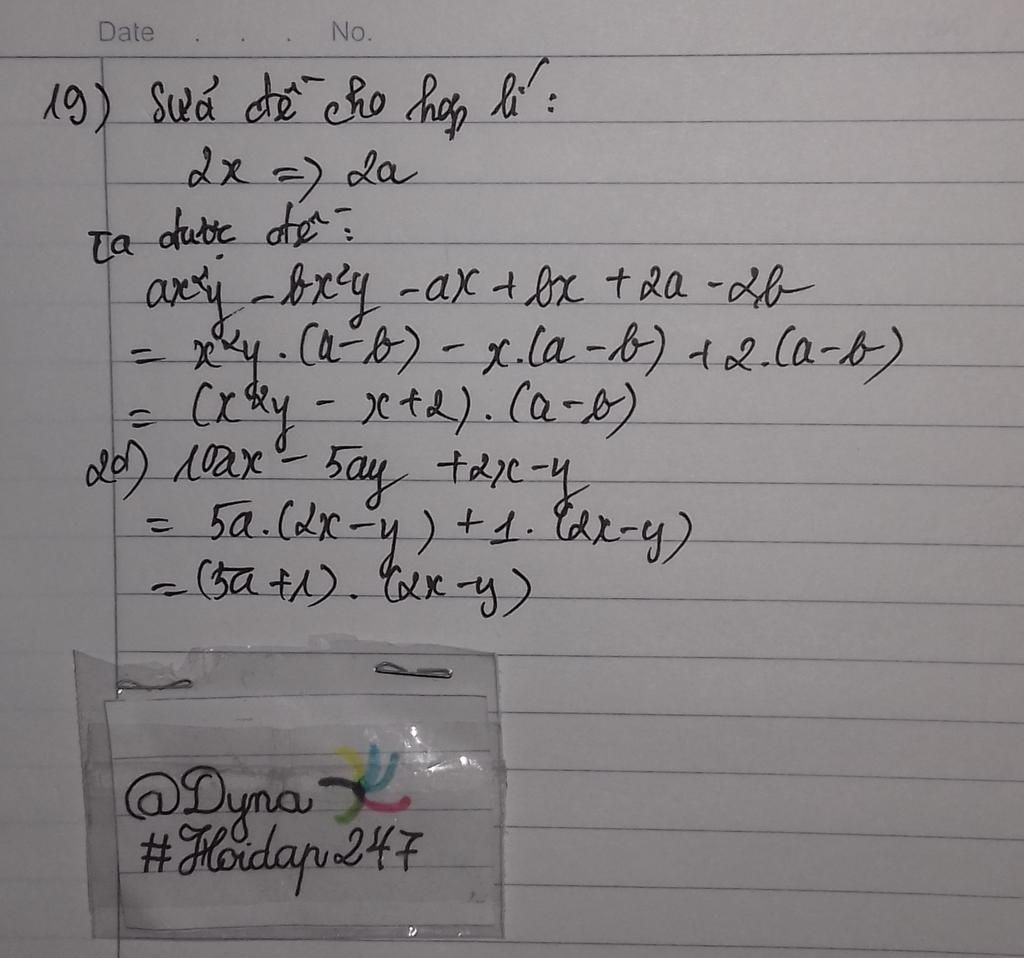 Date . . . No.
19) Sửa đề cho hợp lí:
2x => 2a
Ta được đề:
ax²y - bx²y - ax + bx + 2a - 2b
= x²y . (a-b) - x.(a-b) + 2.(a-b)
= (x²y - x+2) . (a-b)
20) 10ax - 5ay + 2x - y
= 5a.(2x-y) + 1. (2x-y)
= (5a+1) . (2x-y)
@Dyna
#Hoidap247